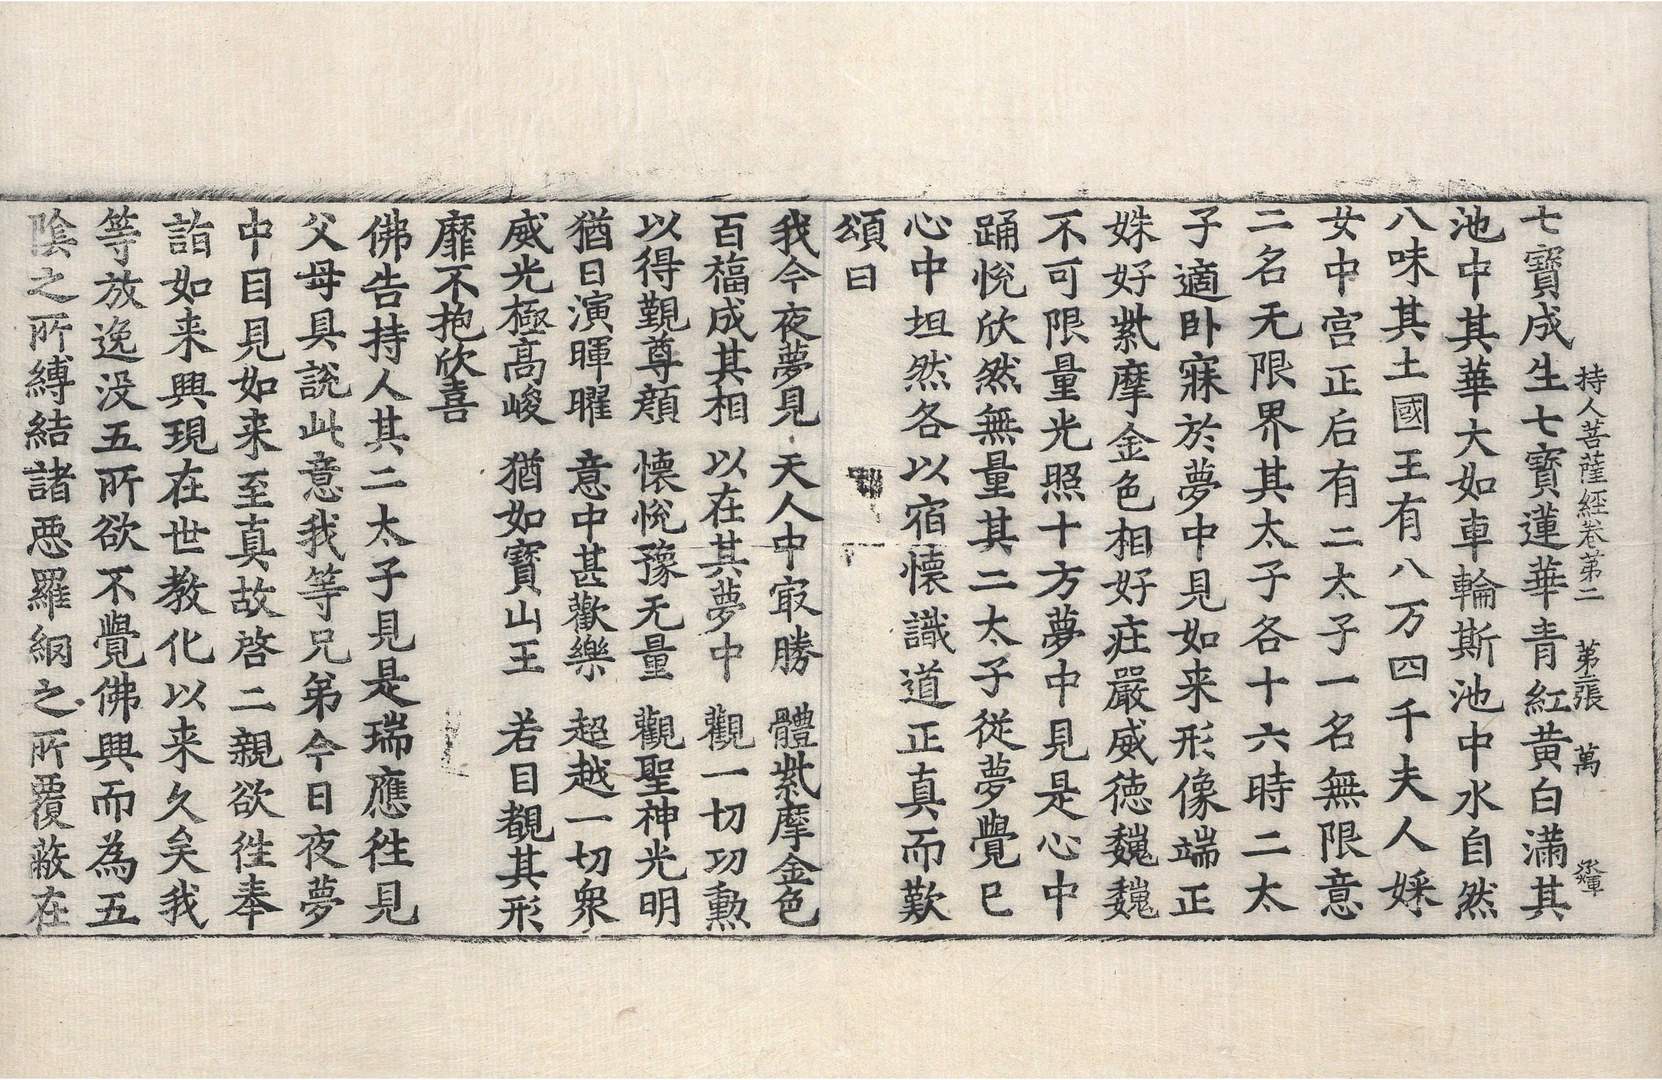 七寶成生七寶蓮華青紅黄白滿其
持人菩薩經卷第二 第 張 萬
池中其華大如車輪斯池中水自然
八味其土國王有八万四千夫人婇
女中宫正后有二太子一名無限意
二名无限界其太子各十六時二太
子適卧寐於夢中見如来形像端正
姝好紫摩金色相好庄嚴威徳巍巍
不可限量光照十方夢中見是心中
踊悅欣然無量其二太子従夢覺已
心中坦然各以宿懐識道正真而歎
頌曰
我今夜夢見 天人中㝡勝 體紫摩金色
百福成其相 以在其夢中 觀一切功勲
以得覲尊顔 懐悅豫无量 觀聖神光明
猶日演暉曜 意中甚歡樂 超越一切衆
威光極高峻 猶如寶山王 若目覩其形
靡不抱欣喜
佛告持人其二太子見是瑞應徃見
父母具說此意我等兄弟今日夜夢
中目見如来至真故啓二親欲徃奉
詣如来興現在世教化以来久矣我
等放逸没五所欲不覺佛興而為五
陰之所縛結諸惡羅網之所覆蔽在